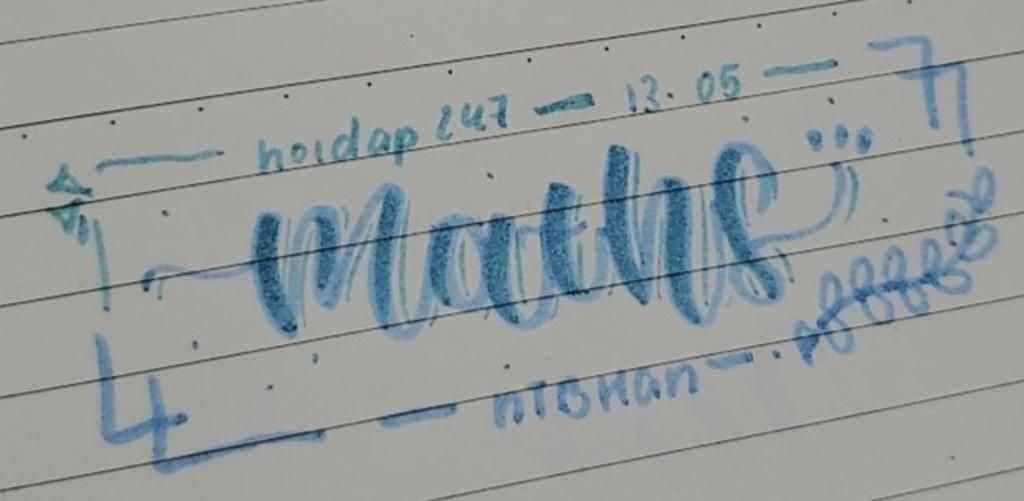 hoidap 247 — 13.05
maths
nTBHan